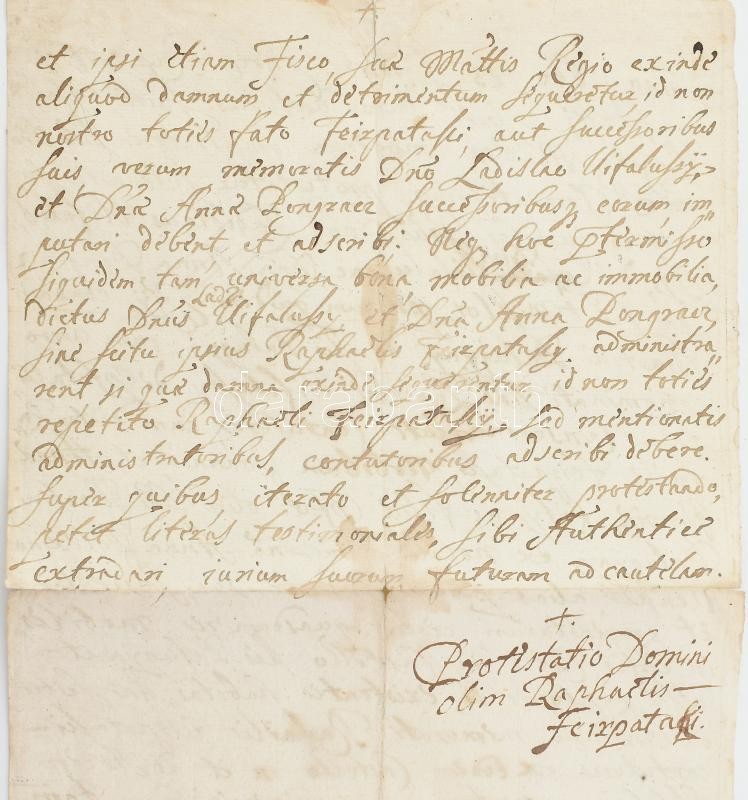 et ipsi etiam Fisco, Suae Mattis Regio exinde
aliquod damnum et detrimentum sequeretur, id non
nostro toties fato Feirpatasÿ, aut successoribus
suis verum memoratis Dno Ladislao Uifalussÿ,
et Dnae Annae Pongracz successoribusq eorum im„
putari debent et adscribi. Neq hoc ptermisso
siquidem tam universa bona mobilia ac immobilia,
dictus Dnus Uifalussy et Dna Anna Pongracz,
sine scitu ipsius Raphaelis Feirpatassy administra„
rent si quae damna exinde sequerentur, id non toties
repetito Raphaeli Feirpatassÿ, sed mentionatis
administratoribus, contutoribus adscribi debere.
super quibus iterato et solenniter protestando,
petit literas testimoniales, sibi Authentice
extradari, iurium suorum futuram ad cautelam.
Protestatio Domini
olim Raphaelis
Feirpatasi.
darabanth